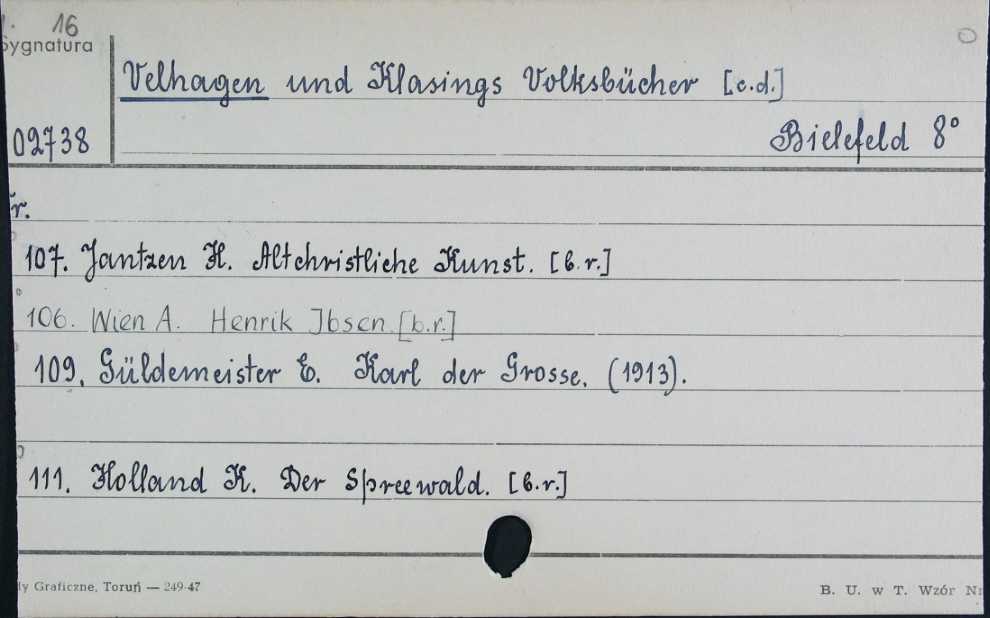 16
Sygnatura
Velhagen und Klasings Volksbücher [c.d.]
02738
Bielefeld 8°
Nr.
107. Jantzen H. Altchristliche Kunst. [b.r.]
106. Wien A. Henrik Ibsen [b.r.]
109. Güldemeister E. Karl der Grosse. (1913).
111. Holland K. Der Spreewald. [b.r.]
Graficzne, Toruń — 249-47
B. U. w T. Wzór Nr